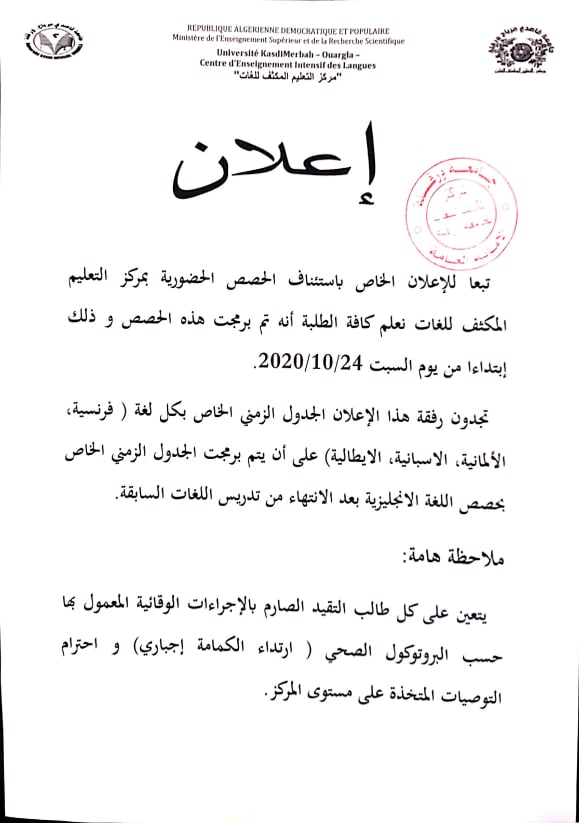 REPUBLIQUE ALGERIENNE DEMOCRATIQUE ET POPULAIRE
Ministère de l'Enseignement Supérieur et de la Recherche Scientifique
Université KasdiMerbah – Ouargla –
Centre d'Enseignement Intensif des Langues
"مركز التعليم المكثف للغات"
إعلان
جامعة ورقلة
مركز
الأمانة العامة
تبعا للإعلان الخاص باستئناف الحصص الحضورية بمركز التعليم
المكثف للغات نعلم كافة الطلبة أنه تم برمجت هذه الحصص و ذلك
إبتداءا من يوم السبت 2020/10/24.
تجدون رفقة هذا الإعلان الجدول الزمني الخاص بكل لغة ( فرنسية،
الألمانية، الاسبانية، الايطالية) على أن يتم برمجت الجدول الزمني الخاص
بحصص اللغة الانجليزية بعد الانتهاء من تدريس اللغات السابقة.
ملاحظة هامة:
يتعين على كل طالب التقيد الصارم بالإجراءات الوقائية المعمول بها
حسب البروتوكول الصحي ( ارتداء الكمامة إجباري) و احترام
التوصيات المتخذة على مستوى المركز.